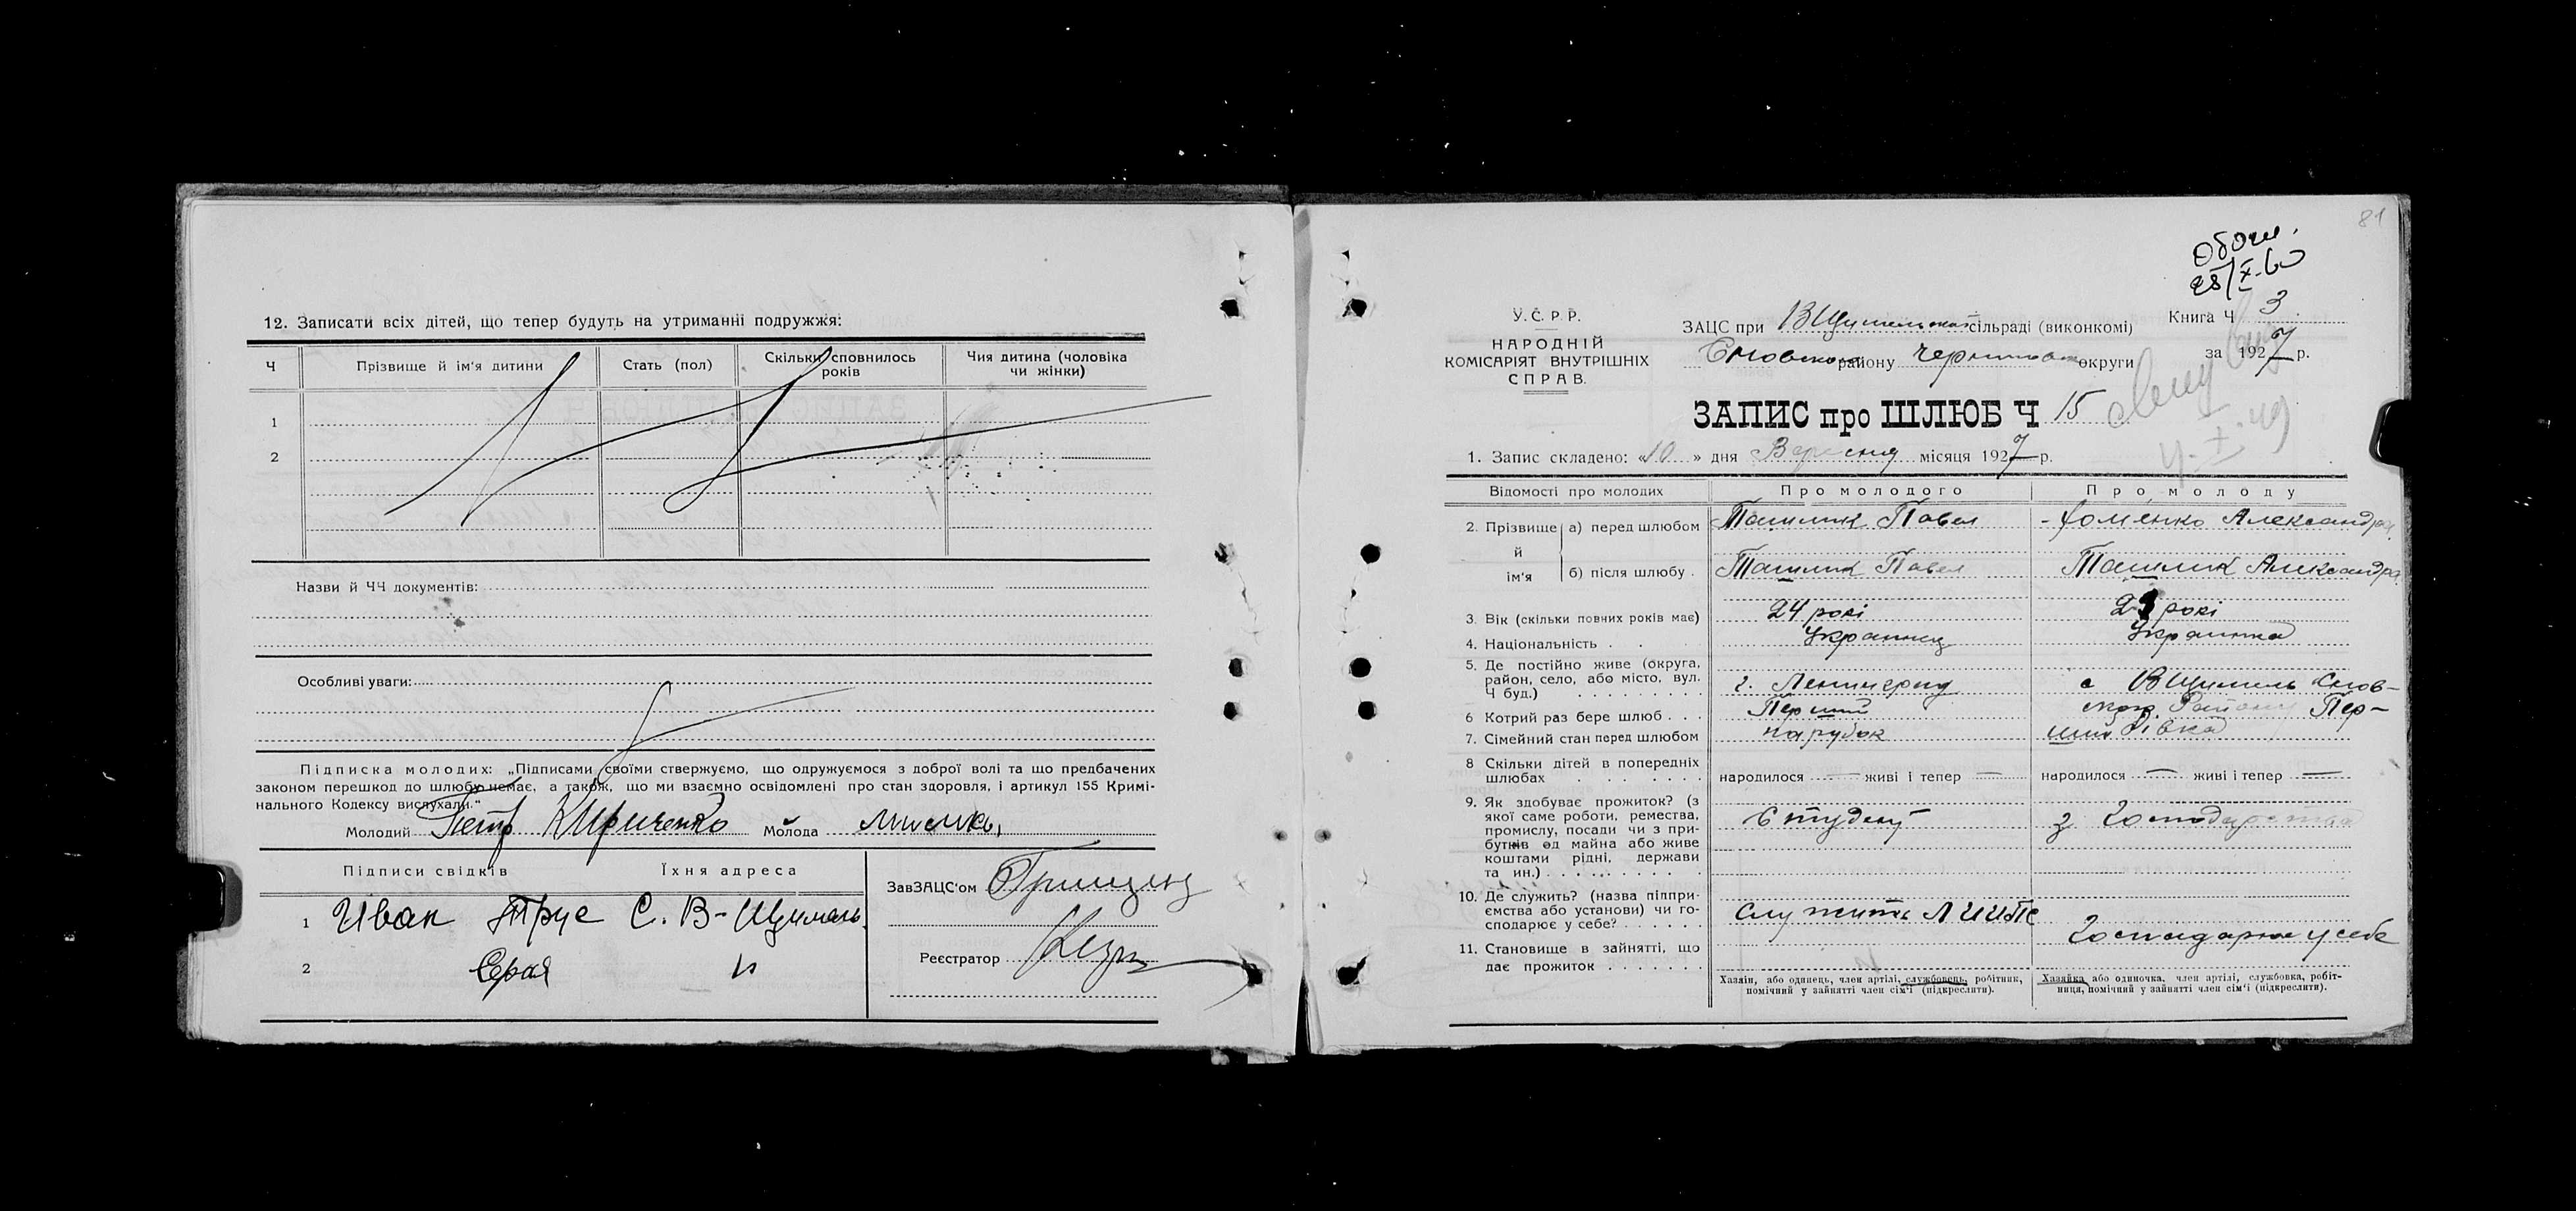 12. Записати всіх дітей, що тепер будуть на утриманні подружжя:
Ч Прізвище й ім'я дитини Стать (пол) Скільки сповнилось років Чия дитина (чоловіка чи жінки)
1
2
Назви й ЧЧ документів:
Особливі уваги:
Підписка молодих: „Підписами своїми ствержуємо, що одружуємося з доброї волі та що предбачених
законом перешкод до шлюбу немає, а також, що ми взаємно освідомлені про стан здоровля, і артикул 155 Кримі-
нального Кодексу вислухали."
Молодий Петр Кириченко Молода
Підписи свідків Їхня адреса
1 Иван Трус С. В-Щимель
2 Серая "
ЗавЗАЦС'ом Грищенц
Реєстратор
81
28/X-60
У.С.Р.Р.
НАРОДНІЙ
КОМІСАРІЯТ ВНУТРІШНІХ
СПРАВ.
ЗАЦС при ВЩимельской сільраді (виконкомі)
Сновского району Чернигов округи
Книга Ч 3
за 1927 р.
ЗАПИС про ШЛЮБ Ч 15
4.X.49
1. Запис складено: «10» дня Вересня місяця 1927 р.
Відомості про молодих Про молодого Про молоду
2. Прізвище й ім'я а) перед шлюбом Ташлик Павел Хоменко Александра
б) після шлюбу Ташлик Павел Ташлик Александра
3. Вік (скільки повних років має) 24 рокі рокі
4. Національність Украинец Украинка
5. Де постійно живе (округа, район, село, або місто, вул. Ч буд.) г. Ленинград с ВЩимель Снов-
ского Району
6 Котрий раз бере шлюб Перший Пер-
ший
7. Сімейний стан перед шлюбом парубок Дівка
8 Скільки дітей в попередніх шлюбах народилося — живі і тепер — народилося — живі і тепер —
9. Як здобуває прожиток? (з якої саме роботи, ремества, промислу, посади чи з прибутків од майна або живе коштами рідні, держави та ин.) Студент з Господарства
10. Де служить? (назва підприємства або установи) чи господарює у себе? служить Господарює у себе
11. Становище в зайнятті, що дає прожиток
Хазяїн, або одинець, член артілі, службовець, робітник,
помічний у зайнятті член сім'ї (підкреслити).
Хазяйка або одиночка, член артілі, службовка, робіт-
ниця, помічний у зайнятті член сім'ї (підкреслити).